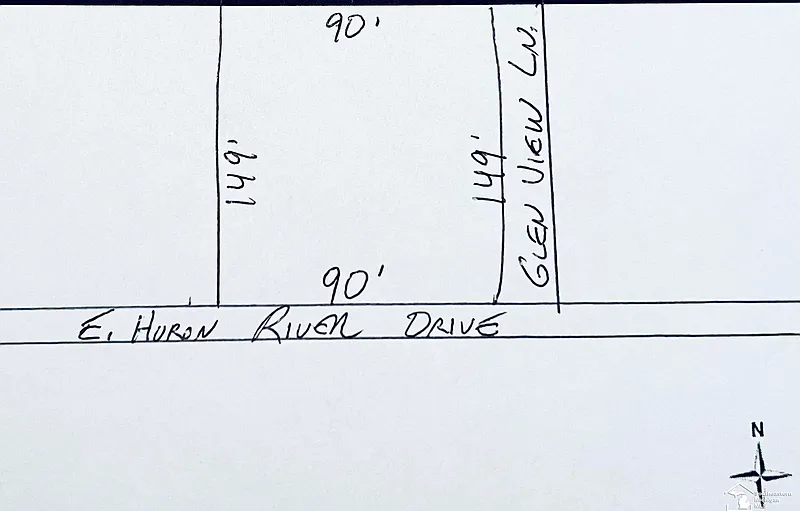 90'
149'
149'
GLEN VIEW LN.
90'
E. HURON RIVER DRIVE
N